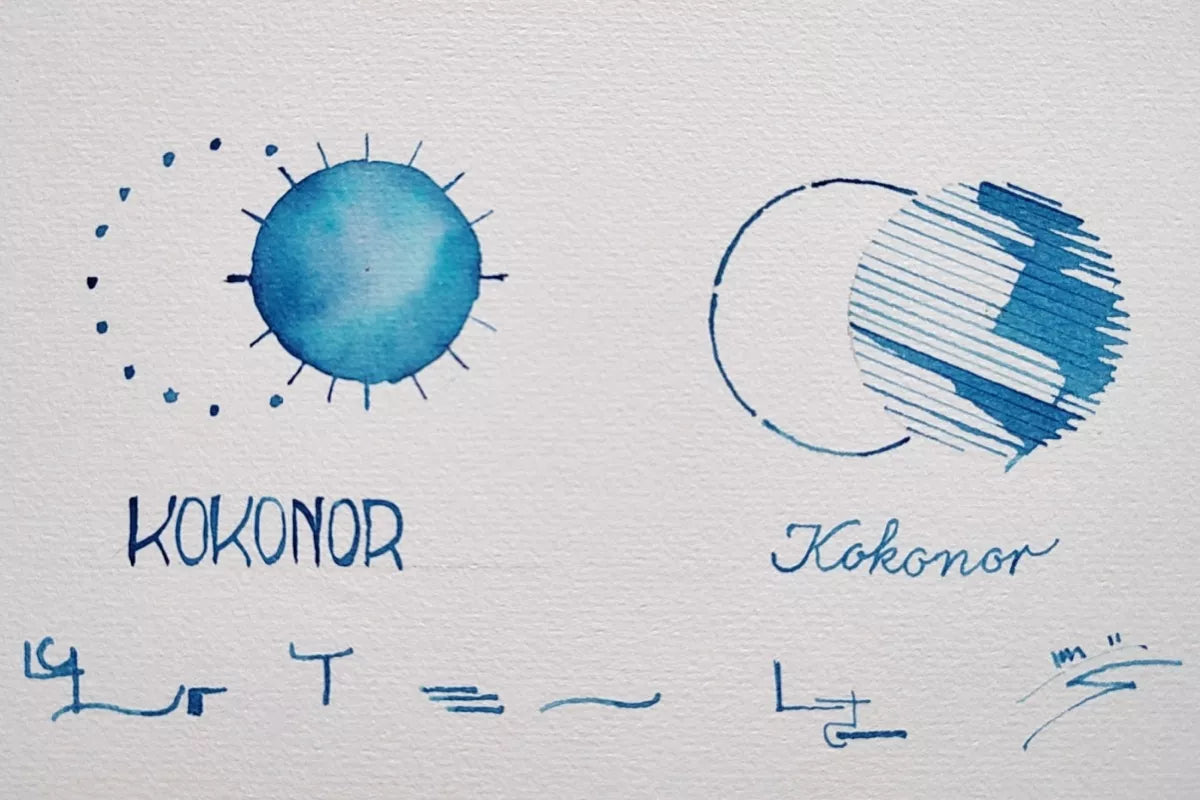 KOKONOR
Kokonor